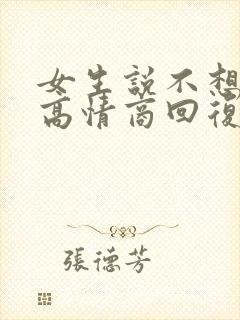 女生説不想
高情商回復
張德芳